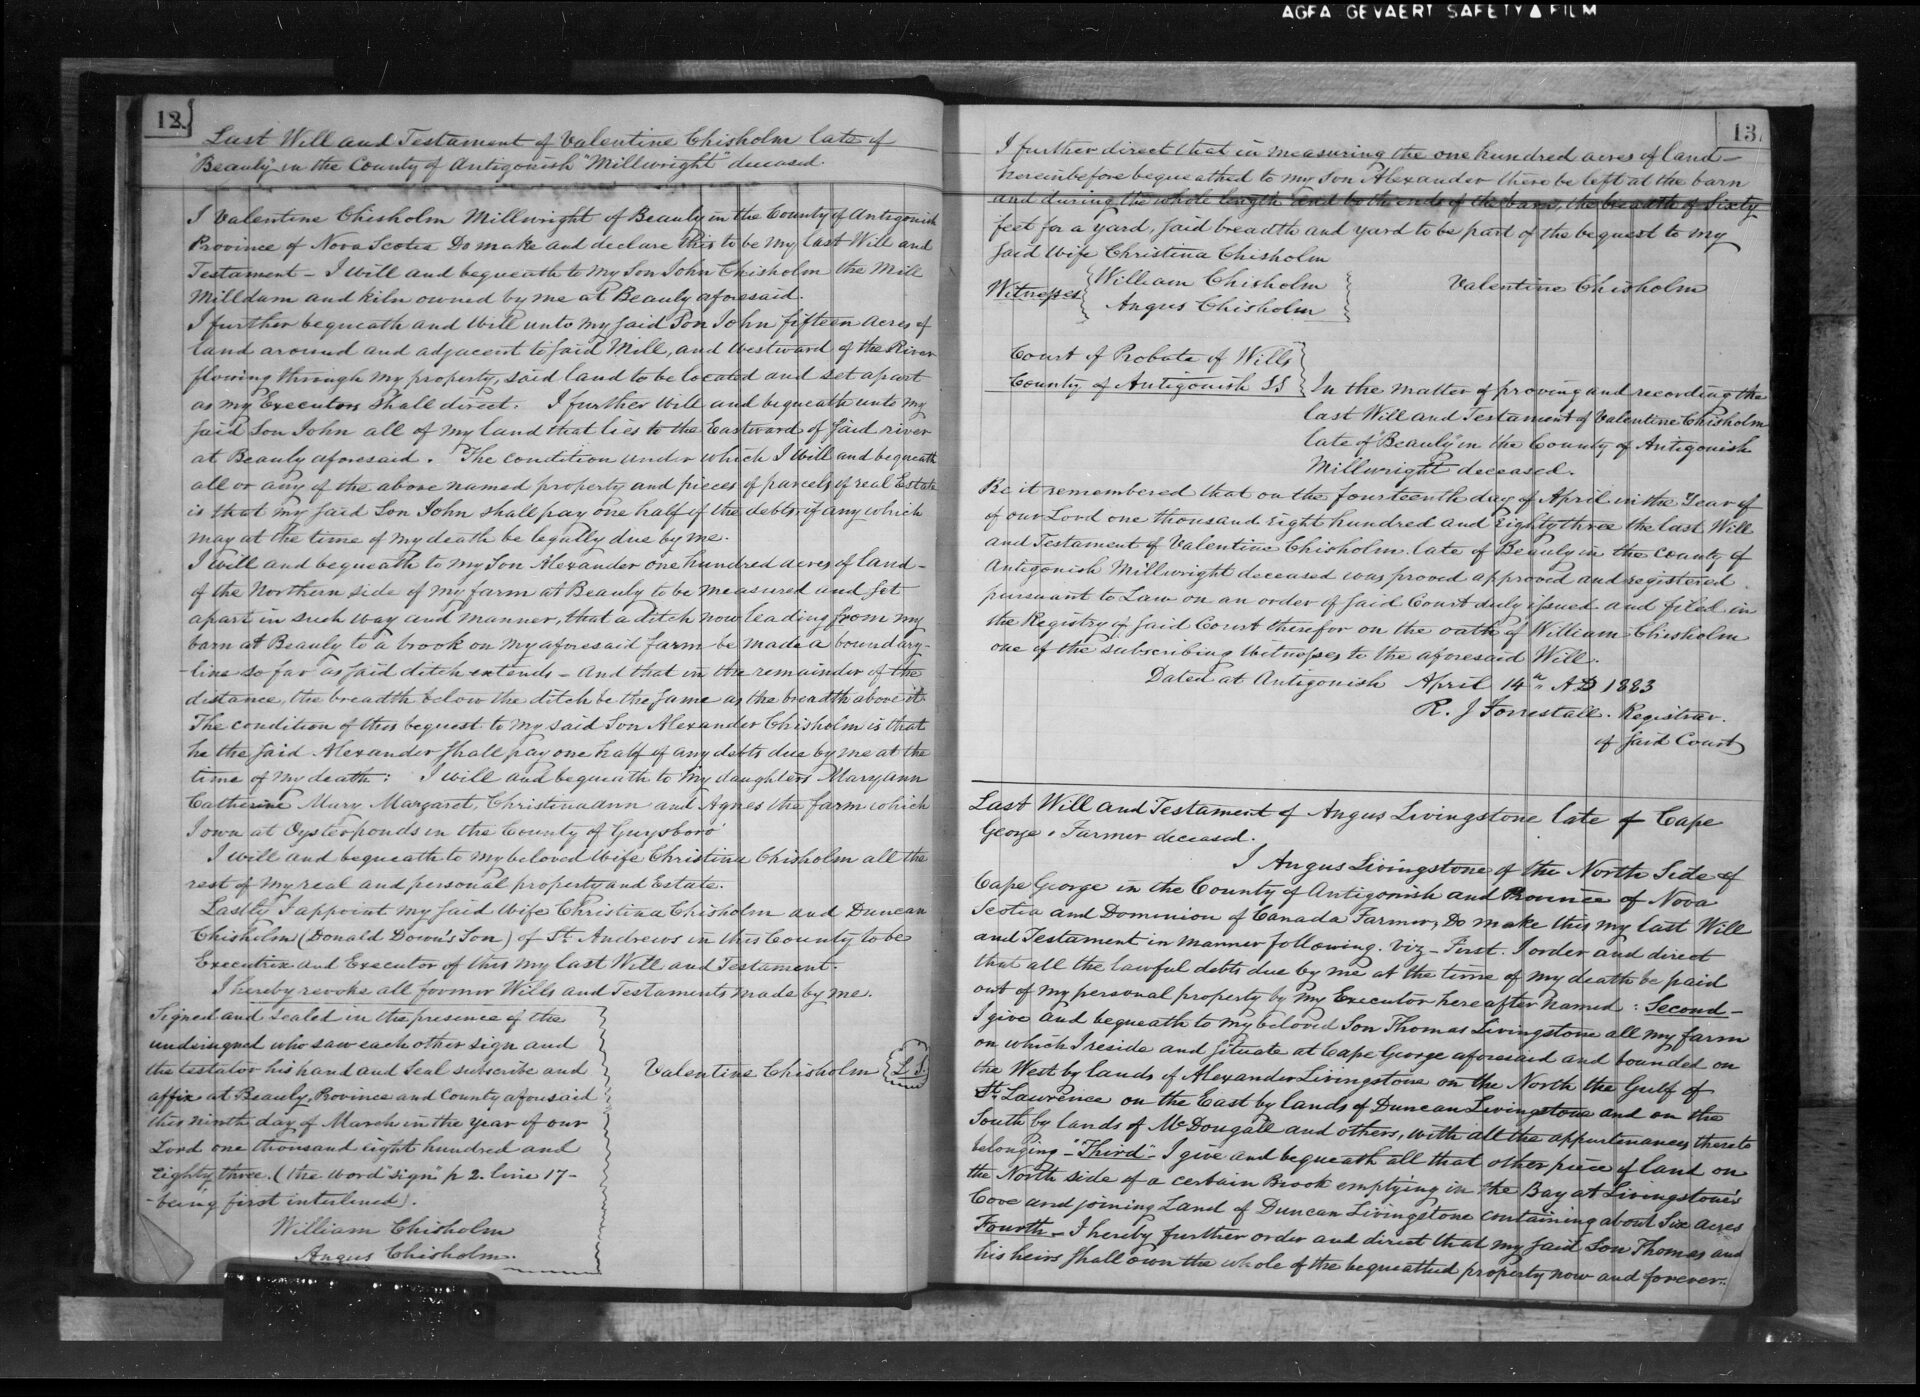 AGFA GEVAERT SAFETY▲FILM
12
Last Will and Testament of Valentine Chisholm late of
"Beauly" in the County of Antigonish "Millwright" deceased.
I Valentine Chisholm Millwright of Beauly in the County of Antigonish
Province of Nova Scotia Do make and declare this to be my last Will and
Testament – I will and bequeath to my Son John Chisholm the Mill
Milldam and kiln owned by me at Beauly aforesaid.
I further bequeath and Will unto my said Son John fifteen acres of
land around and adjacent to said Mill, and Westward of the River
flowing through my property, said land to be located and set apart
as my Executors shall direct. I further will and bequeath unto my
said Son John all of my land that lies to the Eastward of said river
at Beauly aforesaid. The condition under which I will and bequeath
all or any of the above named property and pieces of parcels of real Estate
is that my said Son John shall pay one half of the debts if any which
may at the time of my death be legally due by me.
I will and bequeath to my Son Alexander one hundred acres of land –
of the Northern side of my farm at Beauly to be measured and set
apart in such way and manner, that a ditch now leading from my
barn at Beauly to a brook on my aforesaid farm be made a boundary-
-line so far as said ditch extends – And that in the remainder of the
distance, the breadth below the ditch be the same as the breadth above it
The condition of this bequest to my said Son Alexander Chisholm is that
he the said Alexander shall pay one half of any debts due by me at the
time of my death: I will and bequeath to my daughters Mary Ann
Catherine Mary Margaret, Christina Ann and Agnes the farm which
I own at Oysterponds in the County of Guysboro'
I will and bequeath to my beloved Wife Christina Chisholm all the
rest of my real and personal property and Estate.
Lastly I appoint my said Wife Christina Chisholm and Duncan
Chisholm (Donald Down's Son) of St. Andrews in this County to be
Executrix and Executor of this my last Will and Testament.
I hereby revoke all former Wills and Testaments made by me.
Signed and Sealed in the presence of the
undersigned who saw each other sign and
the testator his hand and Seal subscribe and
affix at Beauly, Province and County aforesaid
this ninth day of March in the year of our
Lord one thousand eight hundred and
Eighty three. (the word "sign" p 2. line 17-
-being first interlined).
Valentine Chisholm L.S.
William Chisholm
Angus Chisholm.
13
I further direct that in measuring the one hundred acres of land –
hereinbefore bequeathed to my Son Alexander there be left at the barn
and during the whole length and both ends of the barn, the breadth of Sixty
feet for a yard, said breadth and yard to be part of the bequest to my
said Wife Christina Chisholm
Witnesses William Chisholm
Angus Chisholm
Valentine Chisholm
Court of Probate of Wills
County of Antigonish SS
In the matter of proving and recording the
last Will and Testament of Valentine Chisholm
late of "Beauly" in the County of Antigonish
Millwright deceased.
Be it remembered that on the fourteenth day of April in the Year of
of our Lord one thousand Eight hundred and Eighty three the last Will
and Testament of Valentine Chisholm late of Beauly in the County of
Antigonish Millwright deceased was proved approved and registered
pursuant to Law on an order of said Court duly issued and filed in
the Registry of said Court therefor on the oath of William Chisholm
one of the subscribing Witnesses to the aforesaid Will.
Dated at Antigonish April 14th AD 1883
R. J Forrestall. Registrar.
of said Court
Last Will and Testament of Angus Livingstone late of Cape
George, Farmer deceased.
I Angus Livingstone of the North Side of
Cape George in the County of Antigonish and Province of Nova
Scotia and Dominion of Canada Farmer, Do make this my last Will
and Testament in manner following. viz – First. I order and direct
that all the lawful debts due by me at the time of my death be paid
out of my personal property by my Executor hereafter named: Second –
I give and bequeath to my beloved Son Thomas Livingstone all my farm
on which I reside and situate at Cape George aforesaid and bounded on
the West by lands of Alexander Livingstone on the North the Gulf of
St. Lawrence on the East by lands of Duncan Livingstone and on the
South by lands of McDougall and others, with all the appurtenances thereto
belonging – "Third" – I give and bequeath all that other piece of land on
the North side of a certain Brook emptying in the Bay at Livingstone's
Cove and joining Land of Duncan Livingstone containing about Six acres
Fourth – I hereby further order and direct that my said Son Thomas and
his heirs shall own the whole of the bequeathed property now and forever.